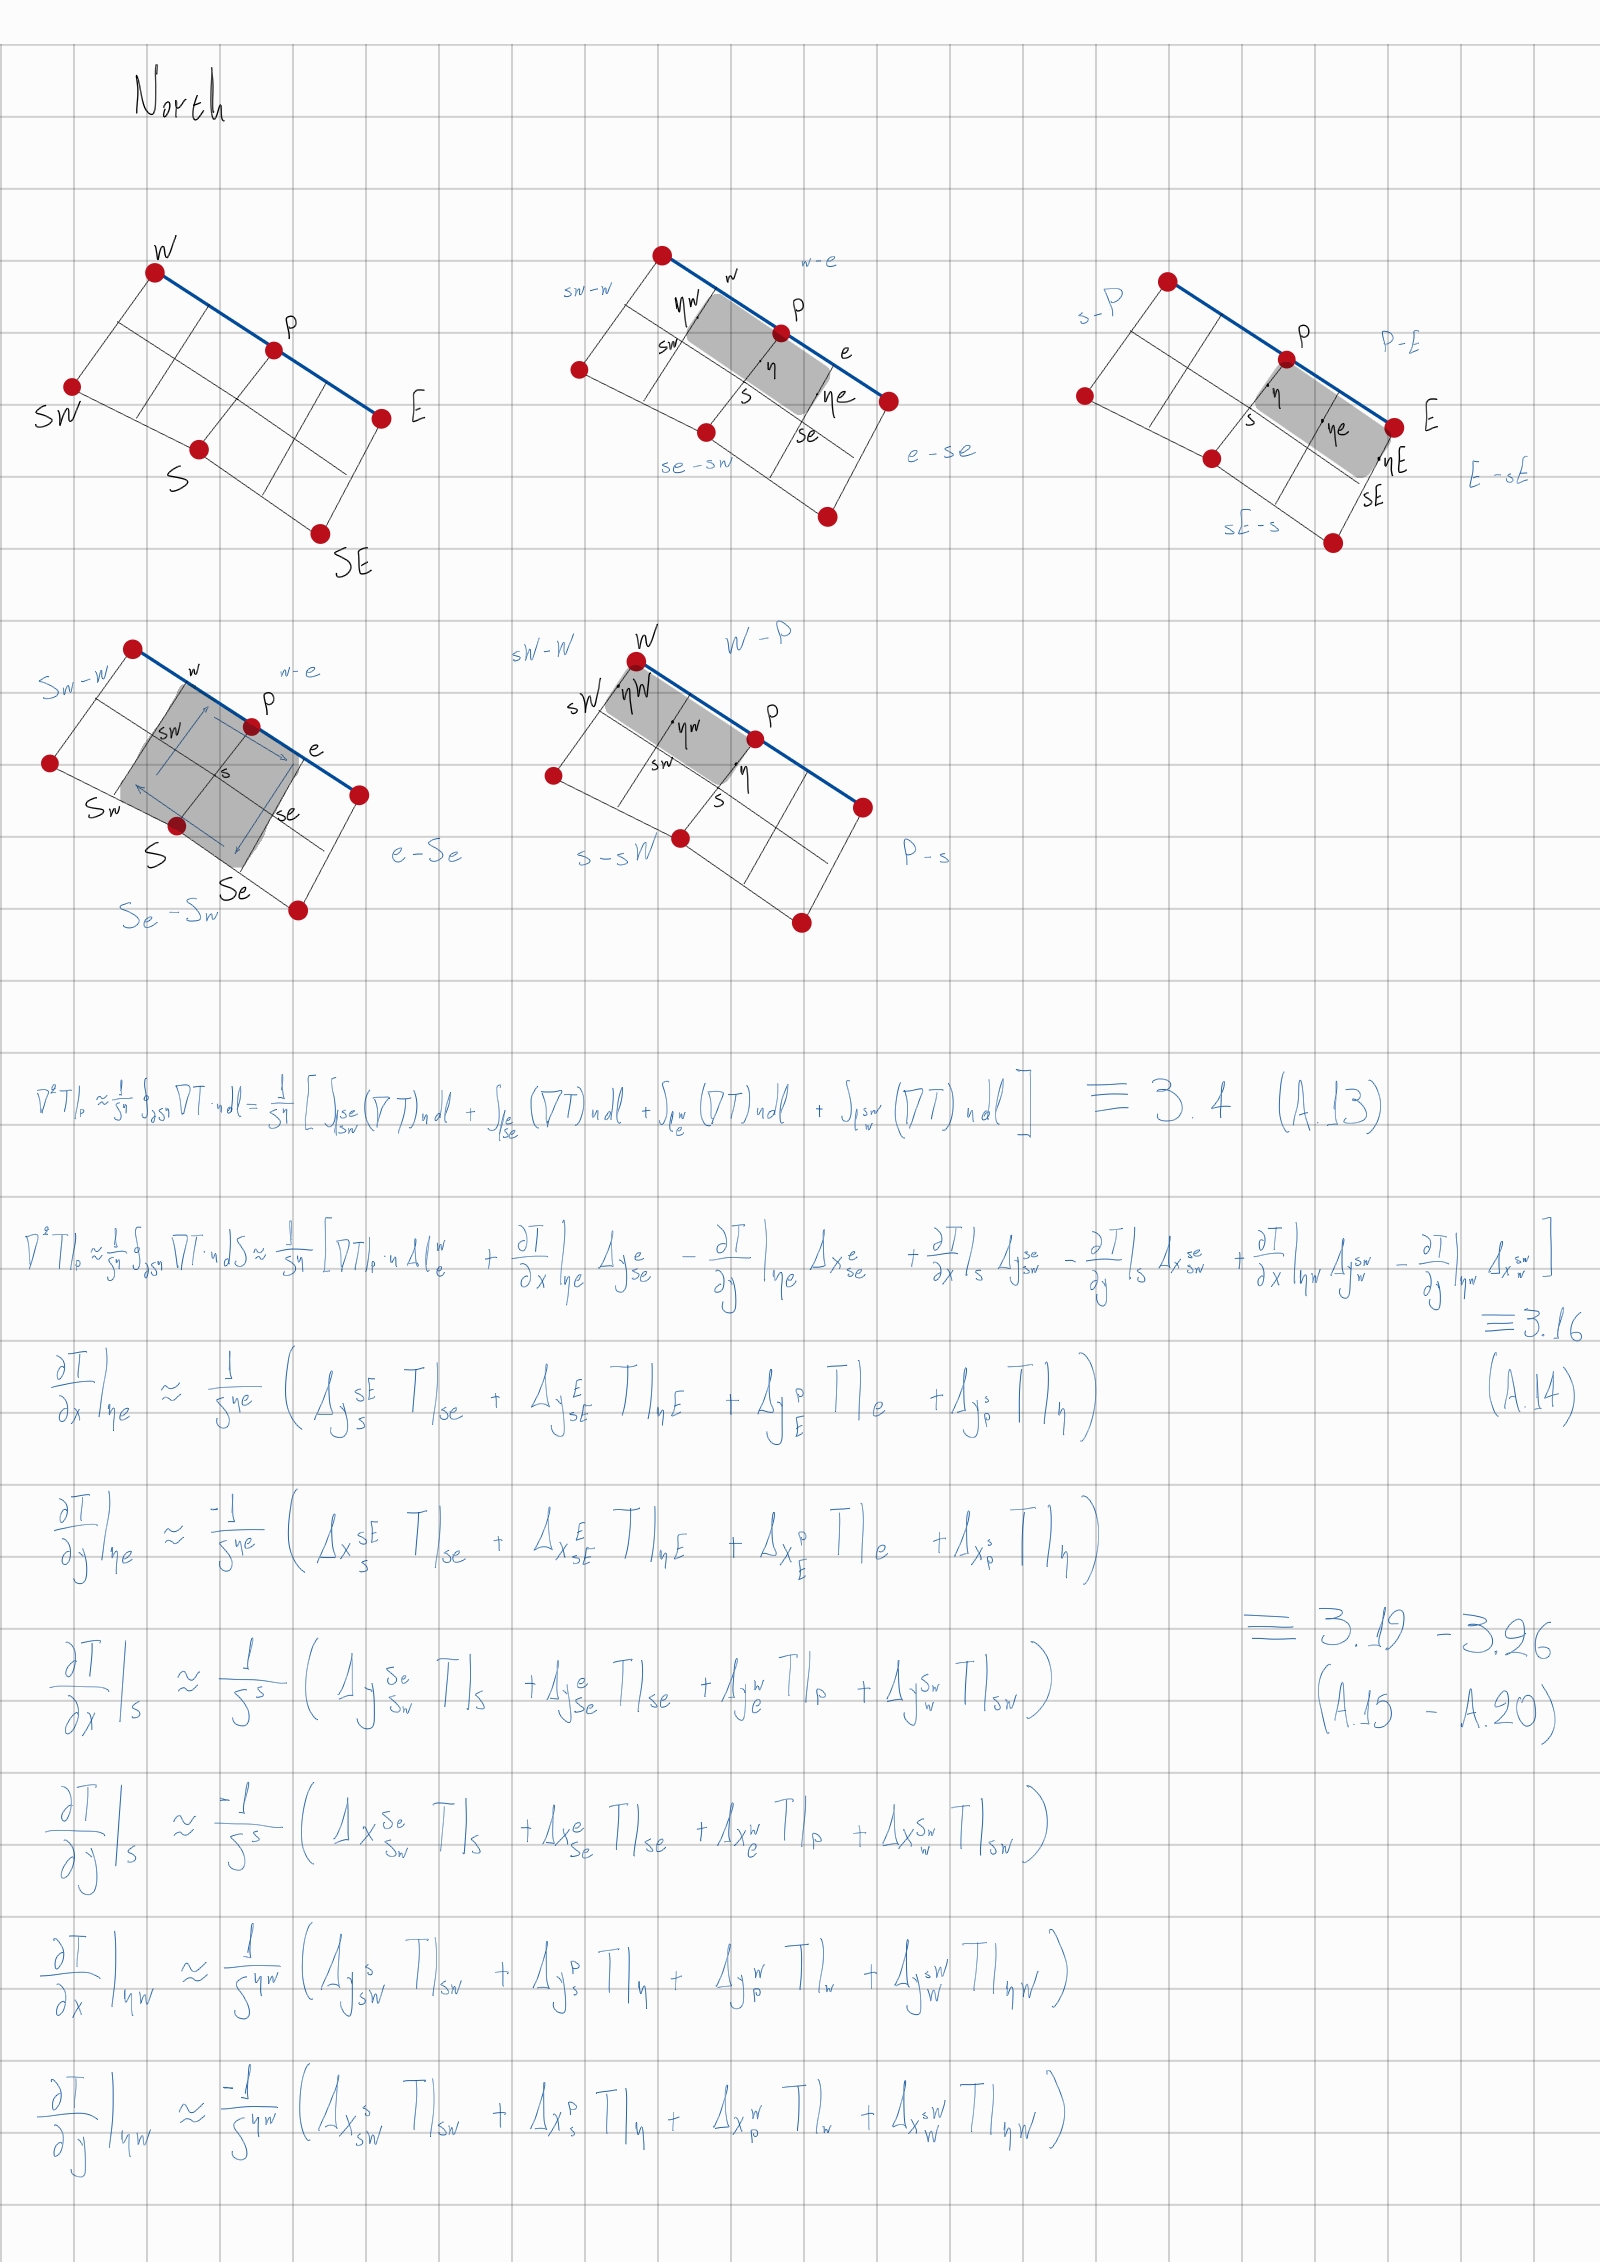 North
W
P
E
SW
S
SE
w-e
sw-w
ηw
w
P
e
sw
η
s
ηe
se
se-sw
e-se
s-P
P
P-E
η
E
s
ηe
ηE
sE
E-sE
sE-s
Sw-w
w
w-e
P
sw
e
s
Sw
se
S
Se
e-Se
Se-Sw
sW-W
W
W-P
sW
ηW
P
ηw
sw
η
s
s-sW
P-s
∇²T|p ≈ 1/S^η ∮∂S^η ∇T·n dl = 1/S^η [ ∫l_sw^se (∇T) n dl + ∫l_se^e (∇T) n dl + ∫l_e^w (∇T) n dl + ∫l_w^sw (∇T) n dl ] ≡ 3.4 (A.13)
∇²T|p ≈ 1/S^η ∮∂S^η ∇T·n dS ≈ 1/S^η [ ∇T|p·n Δl_e^w + ∂T/∂x|ηe Δy_se^e − ∂T/∂y|ηe Δx_se^e + ∂T/∂x|s Δy_sw^se − ∂T/∂y|s Δx_sw^se + ∂T/∂x|ηw Δy_w^sw − ∂T/∂y|ηw Δx_w^sw ]
≡ 3.16
(A.14)
∂T/∂x|ηe ≈ 1/S^ηe ( Δy_s^sE T|se + Δy_sE^E T|ηE + Δy_E^P T|e + Δy_P^s T|η )
∂T/∂y|ηe ≈ -1/S^ηe ( Δx_s^sE T|se + Δx_sE^E T|ηE + Δx_E^P T|e + Δx_P^s T|η )
≡ 3.19 - 3.26
(A.15 - A.20)
∂T/∂x|s ≈ 1/S^s ( Δy_Sw^Se T|S + Δy_Se^e T|se + Δy_e^w T|P + Δy_w^Sw T|sw )
∂T/∂y|s ≈ -1/S^s ( Δx_Sw^Se T|S + Δx_Se^e T|se + Δx_e^w T|P + Δx_w^Sw T|sw )
∂T/∂x|ηw ≈ 1/S^ηw ( Δy_sW^s T|sw + Δy_s^P T|η + Δy_P^W T|w + Δy_W^sW T|ηW )
∂T/∂y|ηw ≈ -1/S^ηw ( Δx_sW^s T|sw + Δx_s^P T|η + Δx_P^W T|w + Δx_W^sW T|ηW )